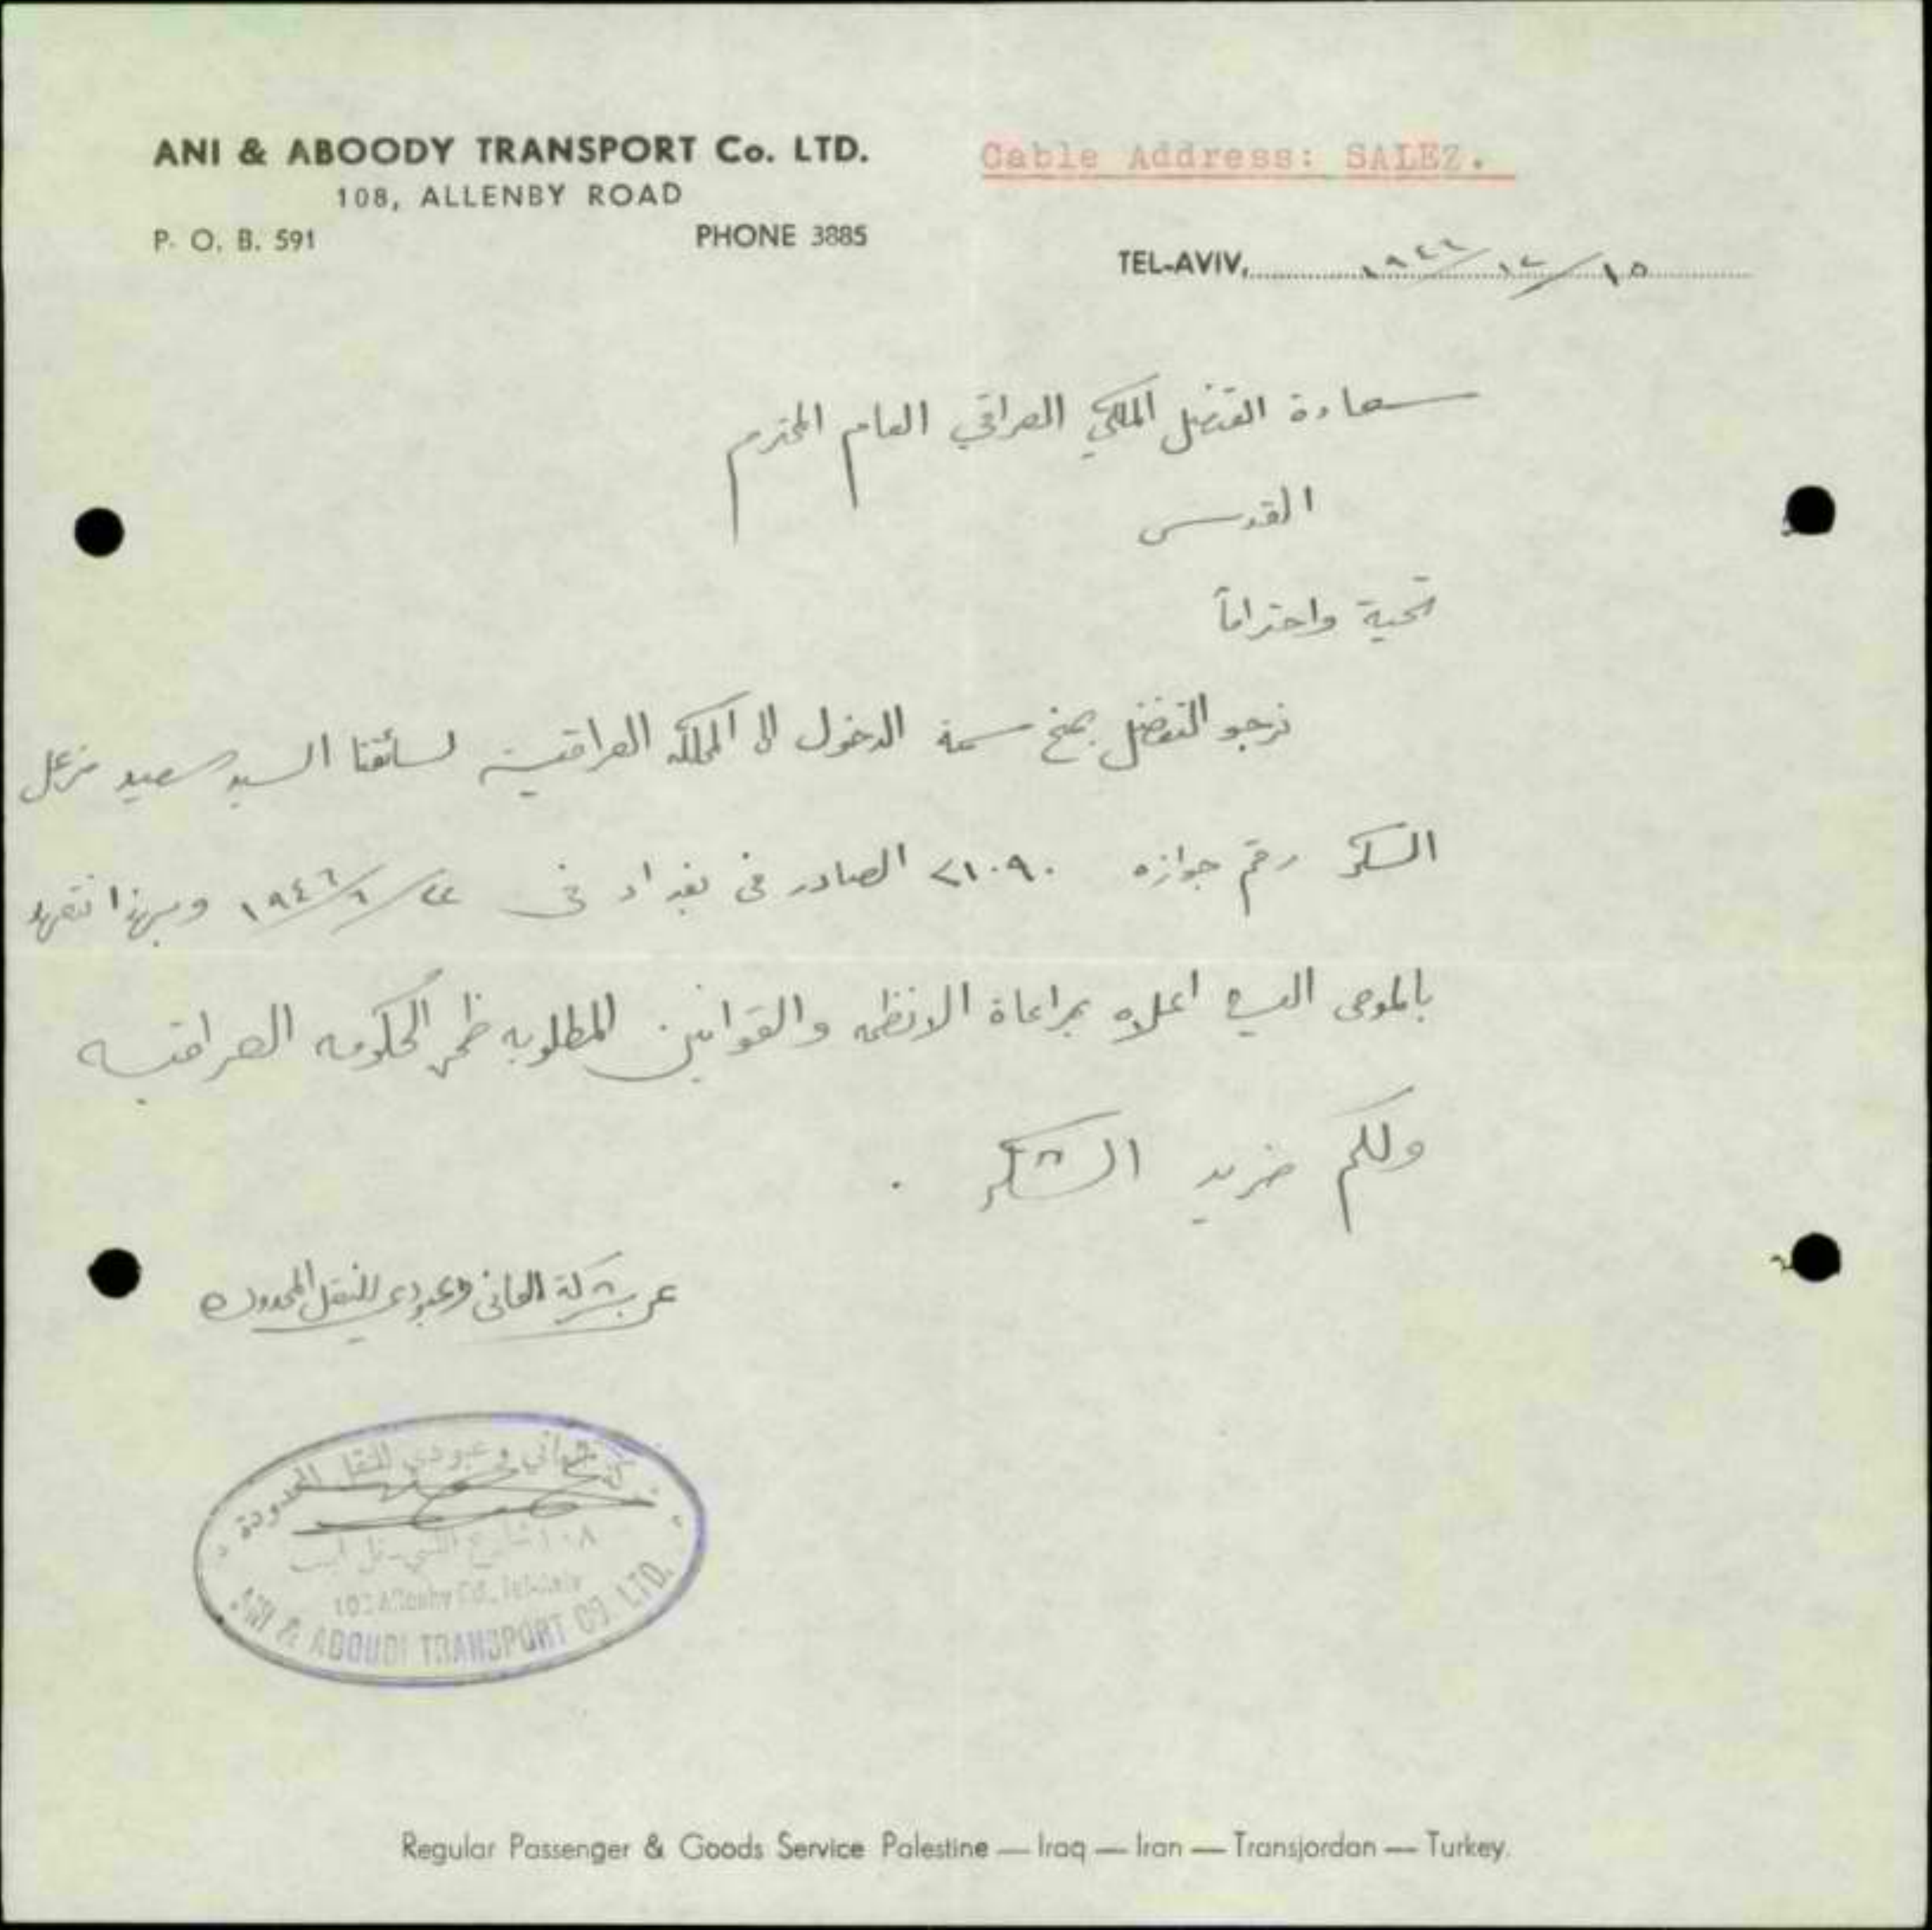 ANI & ABOODY TRANSPORT Co. LTD.
108, ALLENBY ROAD
P. O. B. 591 PHONE 3885
Cable Address: SALEZ.
TEL-AVIV, ١٥/١٢/١٩٤٦
سعادة القنصل الملكي العراقي العام المحترم
القدس
تحية واحتراماً
نرجو التفضل بمنح سمة الدخول الى المملكه العراقية لسائقنا السيد سعيد مزعل
السكر رقم جوازه ٢١٠٩٠ الصادر في بغداد في ١٩٤٦ وبهذا نتعهد
اعلاه بمراعاة الانظمه والقوانين المطلوبه الحكومه العراقيه
ولكم مزيد الشكر .
عن شركة العاني وعبودي للنقل المحدوده
شركة العاني و عبودي للنقل المحدودة
١٠٨ شارع اللنبي - تل ابيب
108 Allenby Rd., Tel-Aviv
ANI & ABOUDI TRANSPORT CO. LTD.
Regular Passenger & Goods Service Palestine — Iraq — Iran — Transjordan — Turkey.